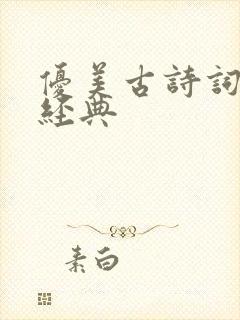 優美古詩詞
經典
素白